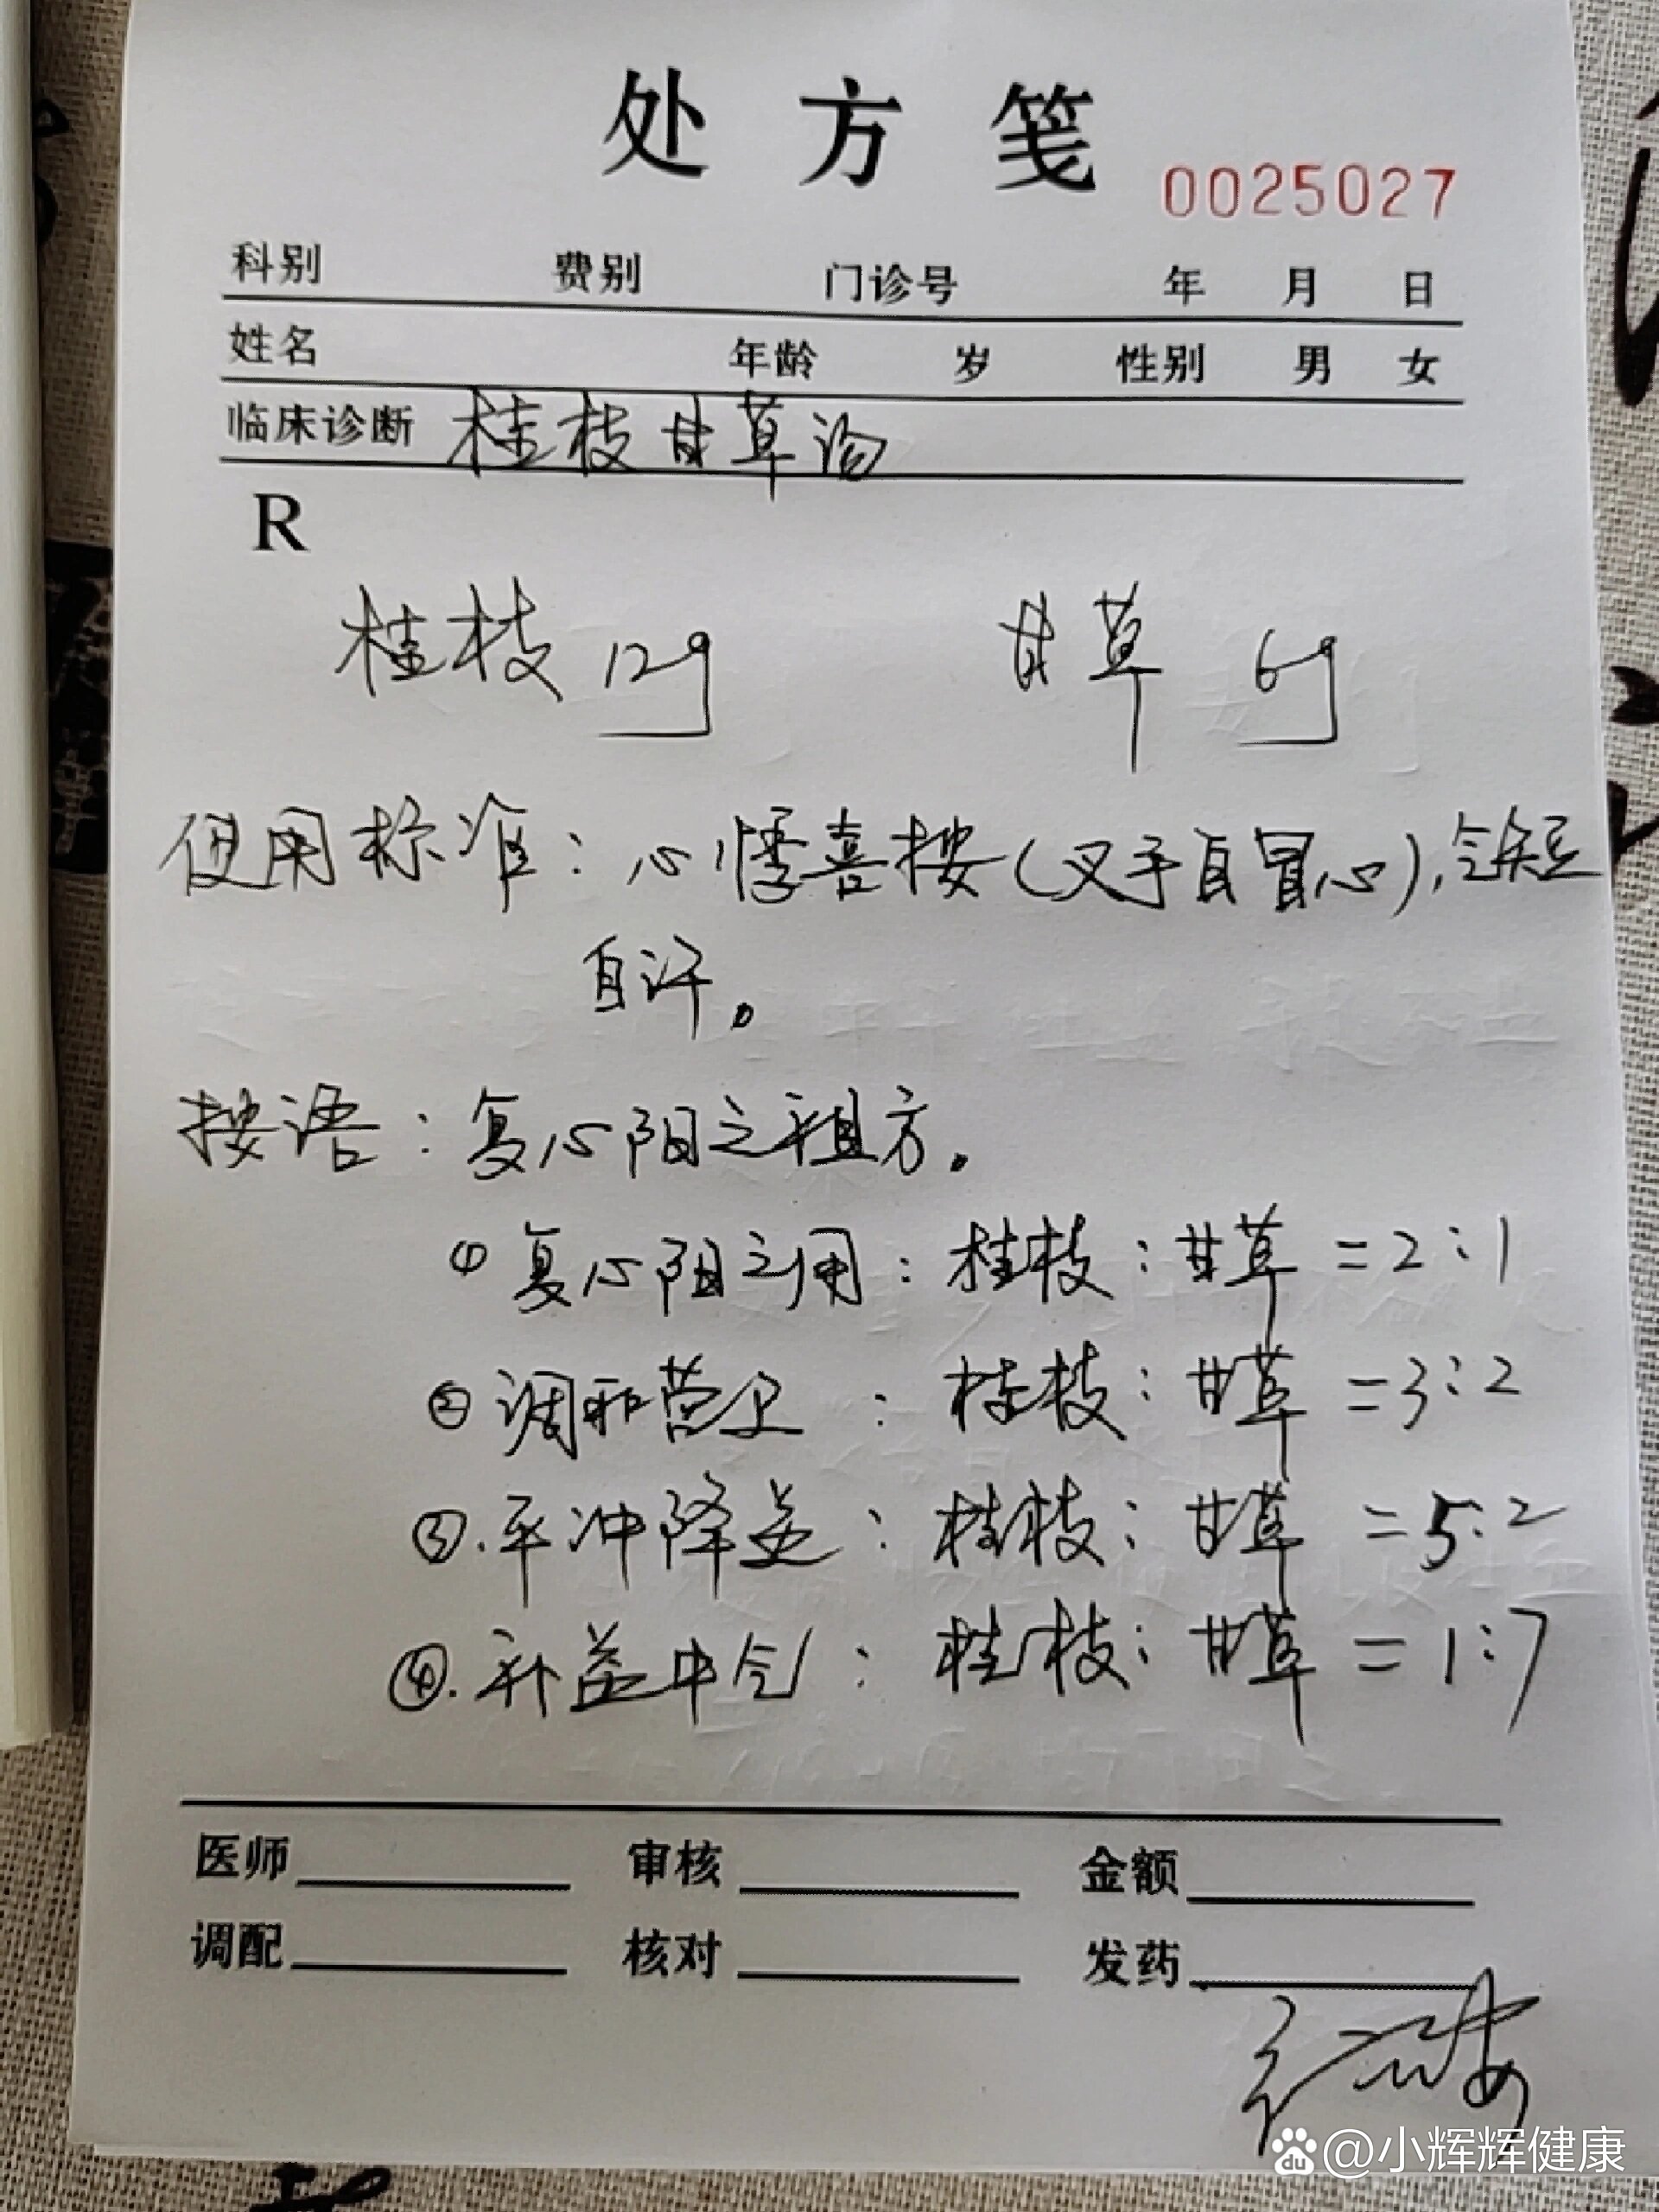 处方笺
0025027
科别 费别 门诊号 年 月 日
姓名 年龄 岁 性别 男 女
临床诊断 桂枝甘草汤
R
桂枝 12g 甘草 6g
使用标准：心悸喜按(叉手自冒心)，气短
自汗。
按语：复心阳之祖方。
① 复心阳之用：桂枝：甘草=2:1
② 调和营卫：桂枝：甘草=3:2
③.平冲降逆：桂枝：甘草=5:2
④.补益中气：桂枝：甘草=1:7
医师 审核 金额
调配 核对 发药
du @小辉辉健康